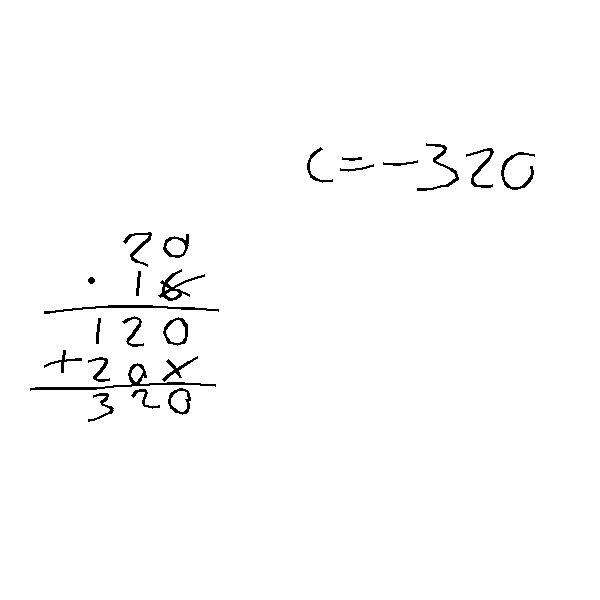 c=-320
20
· 16
120
+20x
320